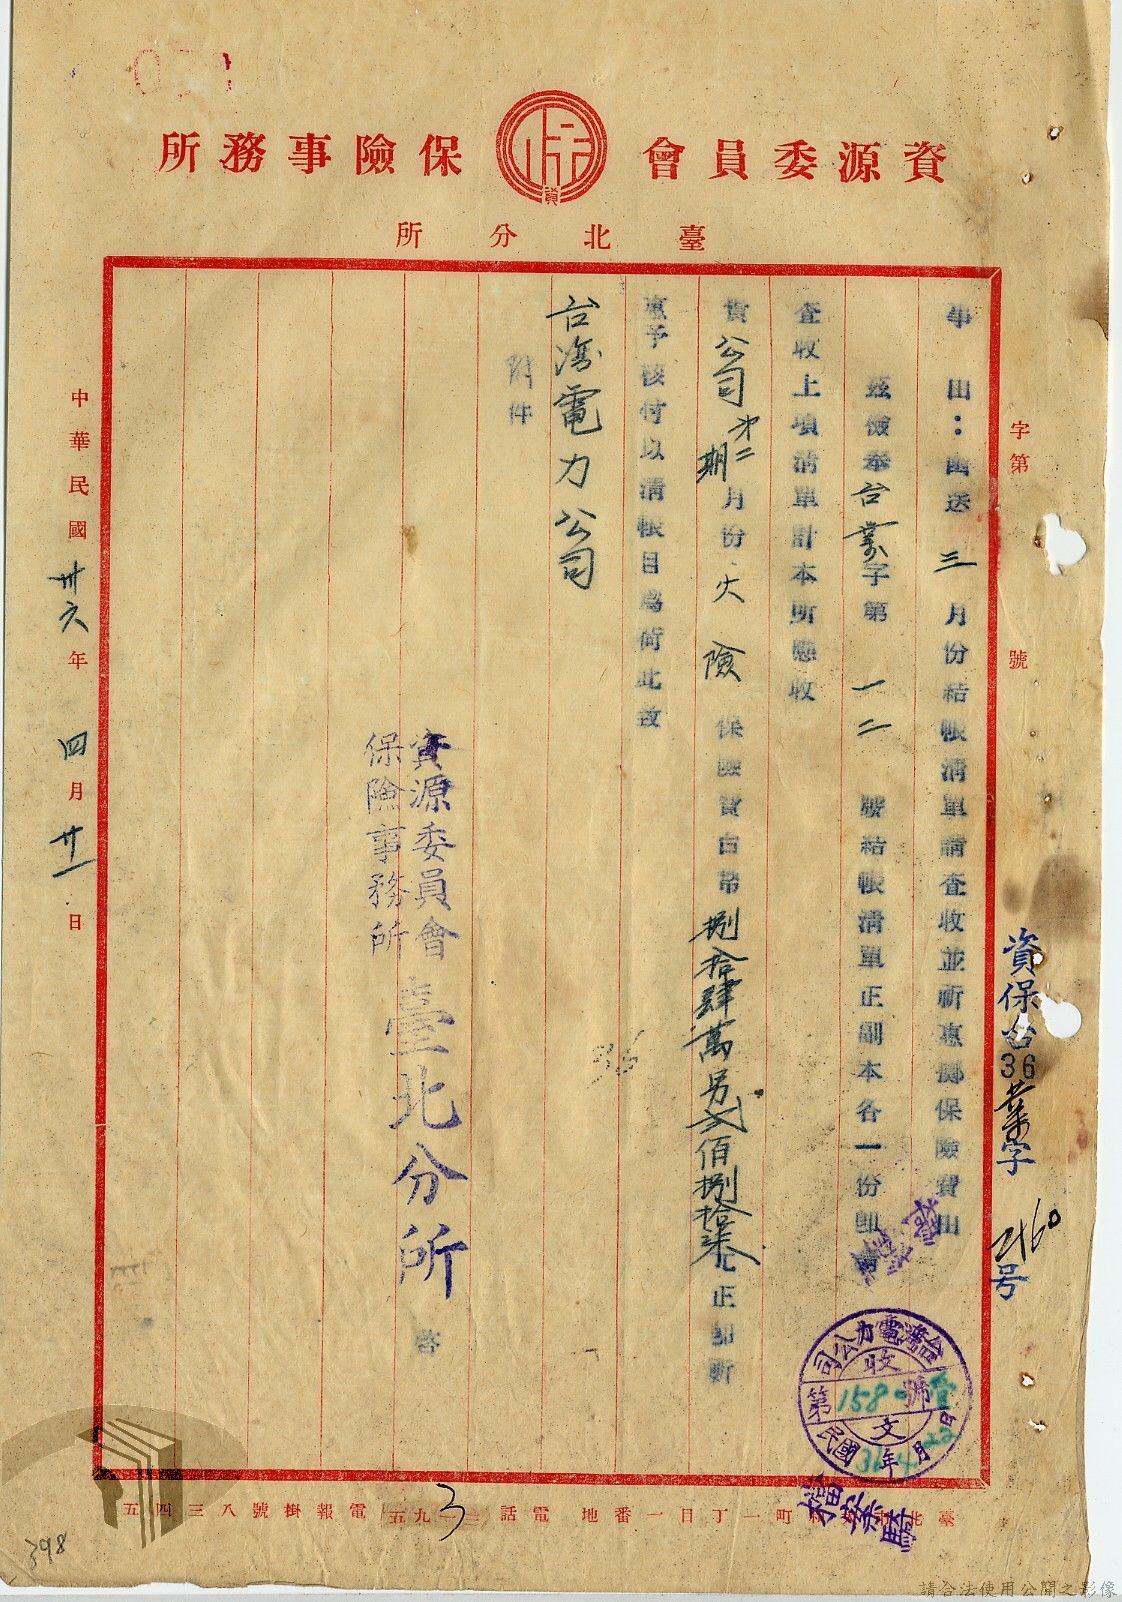 資源委員會保險事務所
臺北分所
字第 號
資保台36業字2160号
事由：函送三月份結帳清單請查收並祈惠擲保險費由
茲檢奉台業字第一二號結帳清單正副本各一份即請
查收上項清單計本所應收
貴公司第二期月份火險保險費台幣捌拾肆萬另貳佰捌拾柒元正即祈
惠予核付以清帳目為荷此致
台灣電力公司
附件
資源委員會
保險事務所
臺北分所
啓
中華民國卅六年四月廿一日
台灣電力公司
收文
第158 號
民國36年4月22日
檔案
臺北 町一丁目一番地 電話三一九五 電報掛號八三四五
3
36
398
請合法使用公開之影像